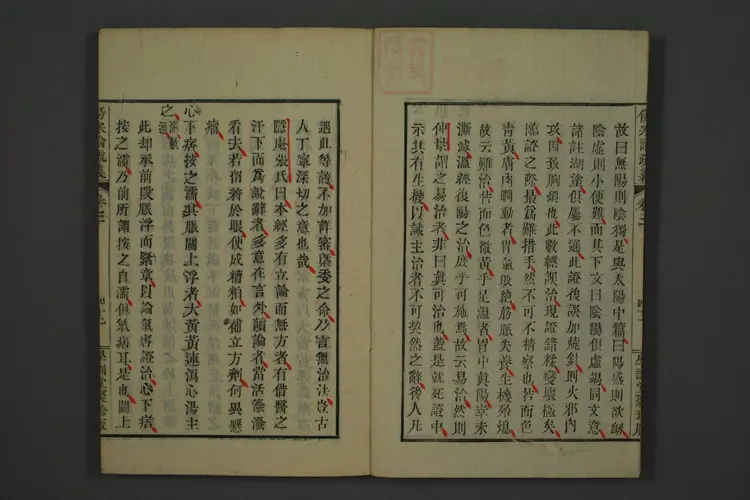 故曰無陽則陰獨是與太陽中篇曰陽盛則欲衂
陰虛則小便難而其下文曰陰陽俱虛竭同文意
諸註糊塗俱屬不通此證復誤加燒針則火邪內
攻因致胸煩也此數經誤治現證錯糅變壞極矣
臨證之際最爲難措手然不可不精察也皆面色
青黃膚肉瞤動者胃氣敗絶筋脈失養生機殄熄
故云難治皆面色微黃手足溫者胃中眞陽幸未
澌滅溫經復陽之治庶乎可施焉故云易治然則
仲景謂之易治者非曰眞可治也蓋是就死證中
示其有生機以誡主治者不可契然之辭後人凡
遇此等證不加詳審槩委之命乃言無治法豈古
人丁寧深切之意也哉
隱庵張氏曰本經多有立論而無方者有借醫之
汗下而爲說辭者多意在言外讀論者當活潑潑
看去若留著於眼便成糟粕如補立方劑何異懸
瘤
心下痞按之濡其脈關上浮者大黃黃連瀉心湯主
之
此却承前段脈浮而緊章以論氣痞證治心下痞
按之濡乃前所謂按之自濡俱氣痞耳是也關上
傷寒論疏義
卷三
四十二
學訓堂聚珍版